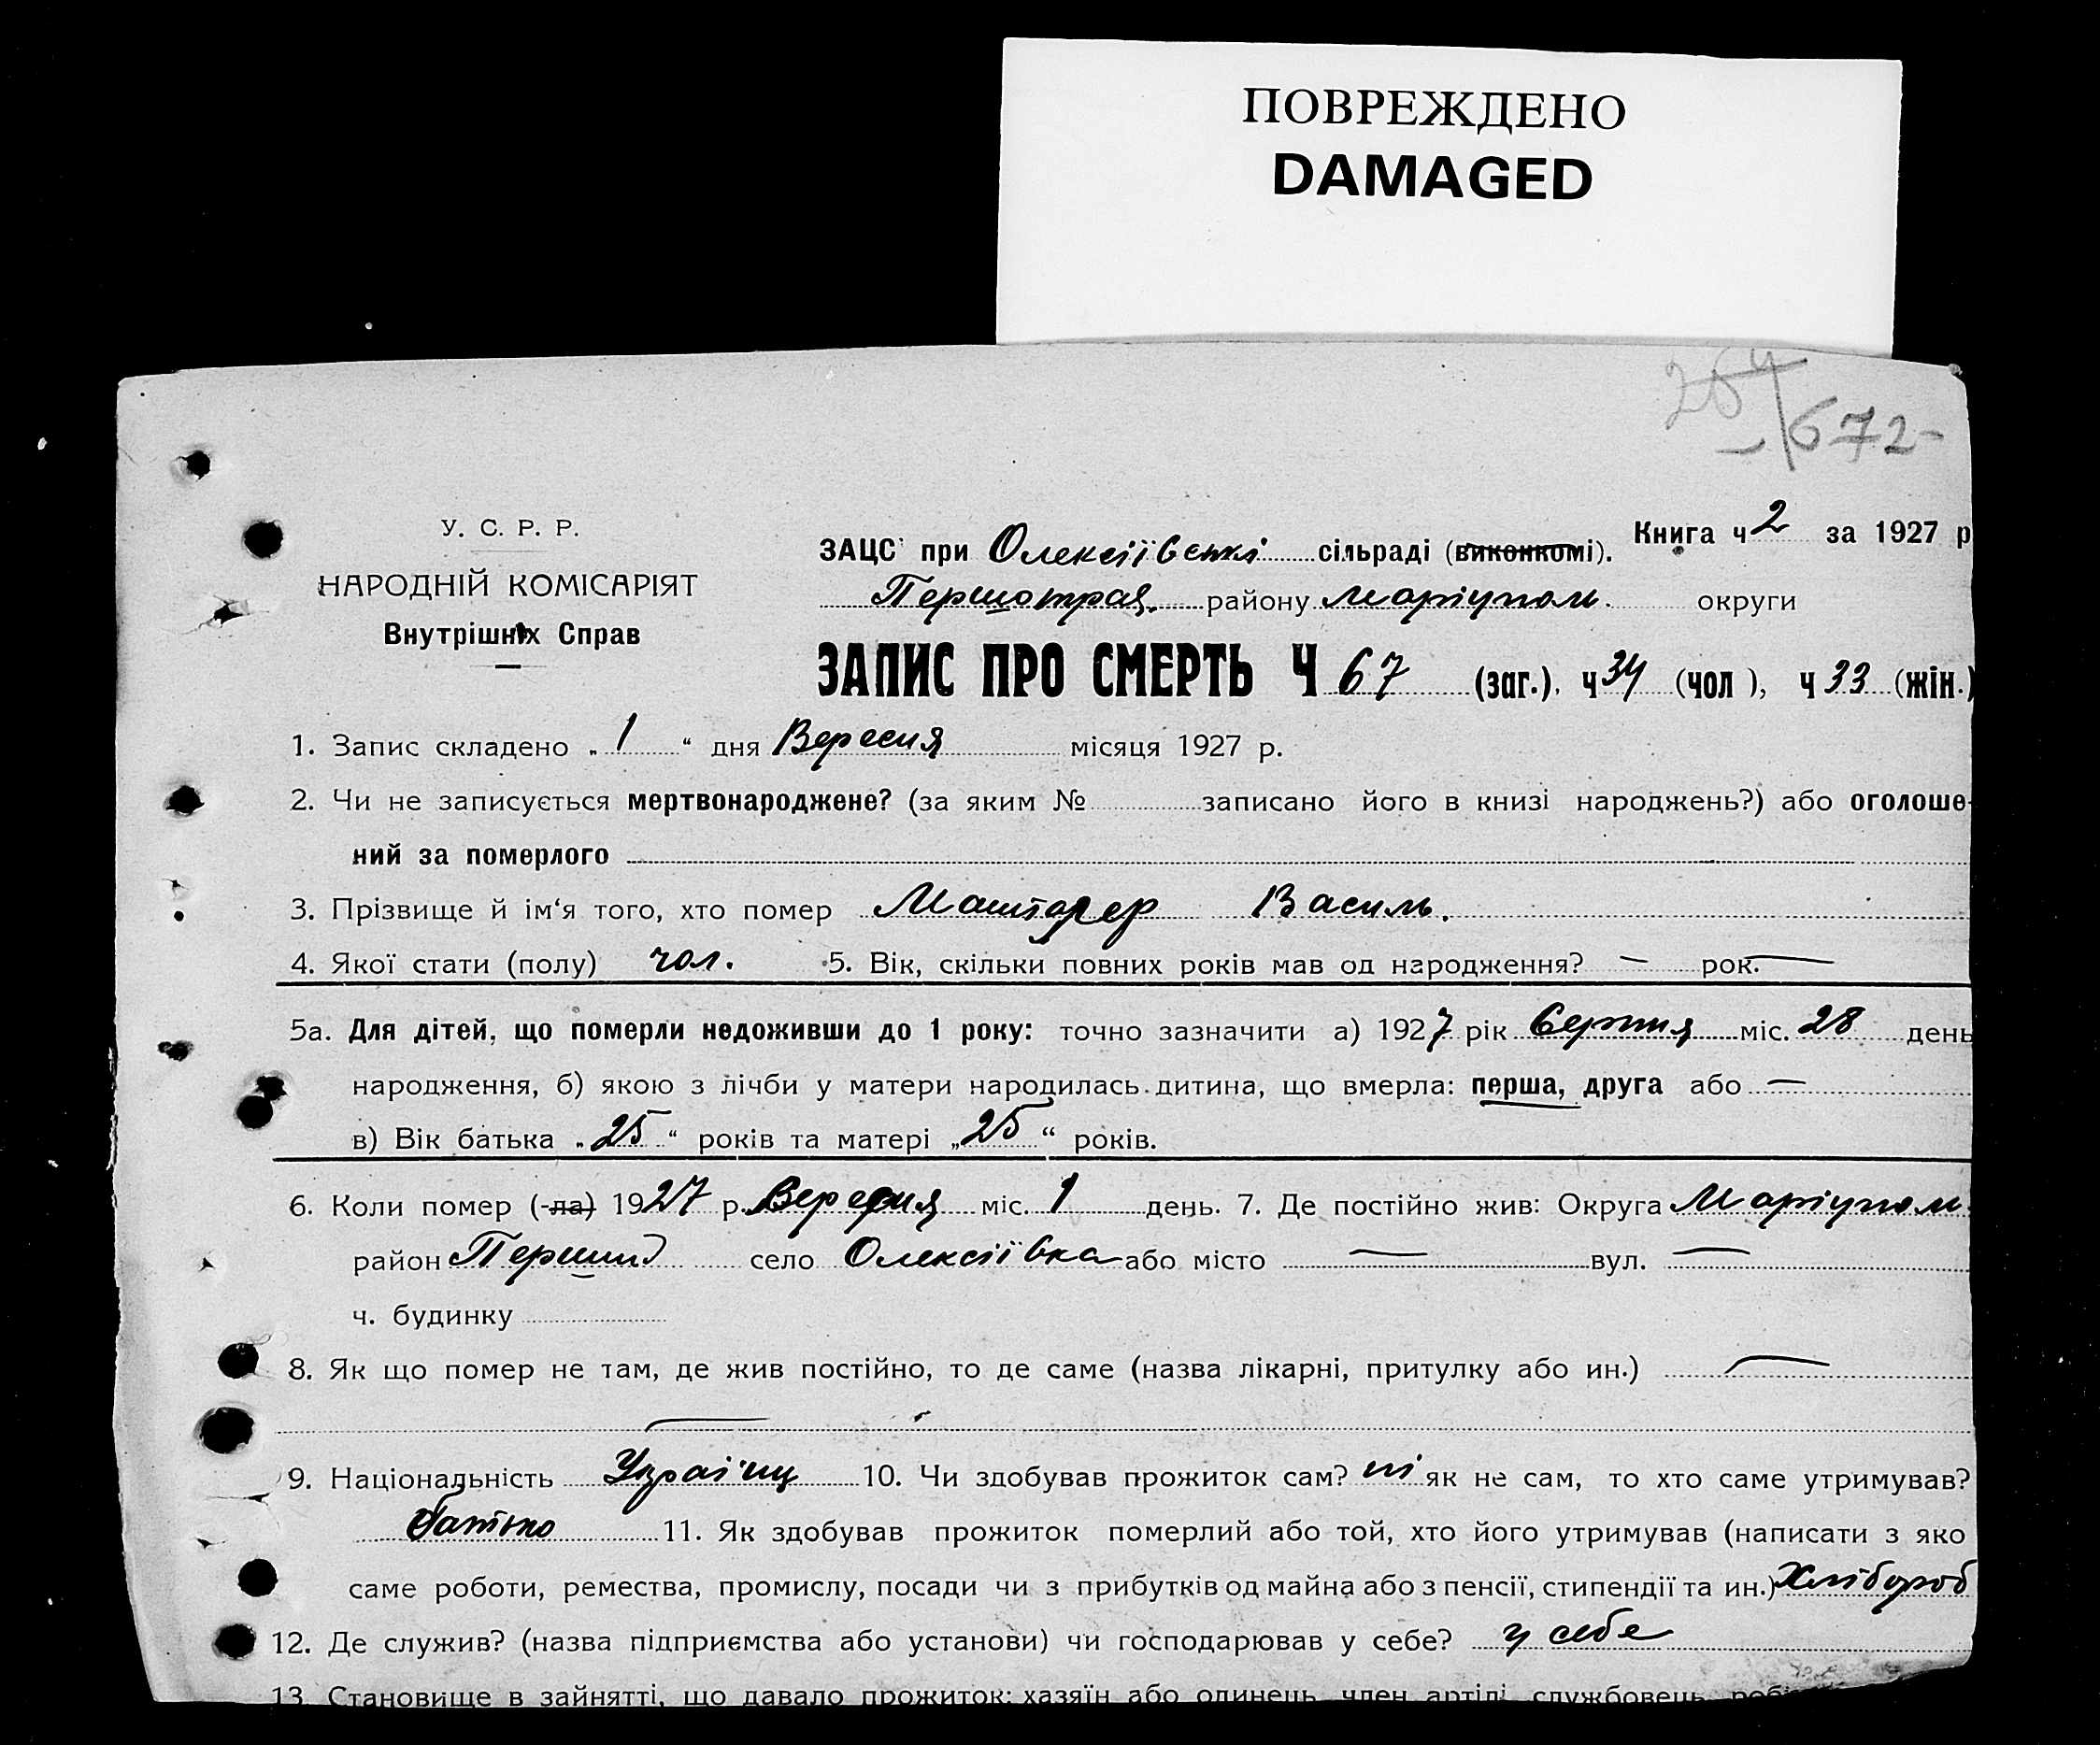 ПОВРЕЖДЕНО
DAMAGED
264
672-
У. С. Р. Р.
НАРОДНІЙ КОМІСАРІЯТ
Внутрішніх Справ
Книга ч 2 за 1927 р
ЗАЦС при Олексіївській сільраді (виконкомі).
Першотрав. району Маріупол. округи
ЗАПИС ПРО СМЕРТЬ Ч 67 (заг.), ч 34 (чол ), ч 33 (жін.)
1. Запис складено „ 1 “ дня Вересня місяця 1927 р.
2. Чи не записується мертвонароджене? (за яким № записано його в книзі народжень?) або оголоше-
ний за померлого
3. Прізвище й ім‘я того, хто помер Василь.
4. Якої стати (полу) чол. 5. Вік, скільки повних років мав од народження? — рок.
5а. Для дітей, що померли недоживши до 1 року: точно зазначити а) 1927 рік Серпня міс. 28 день
народження, б) якою з лічби у матери народилась дитина, що вмерла: перша, друга або —
в) Вік батька „ 25 “ років та матері „ 25 “ років.
6. Коли помер (-ла) 1927 р. Вересня міс. 1 день. 7. Де постійно жив: Округа Маріупол.
район Перший село Олексіївка або місто — вул. —
ч. будинку
8. Як що помер не там, де жив постійно, то де саме (назва лікарні, притулку або ин.) —
—
9. Національність 10. Чи здобував прожиток сам? ні як не сам, то хто саме утримував?
батько 11. Як здобував прожиток померлий або той, хто його утримував (написати з яко
саме роботи, ремества, промислу, посади чи з прибутків од майна або з пенсії, стипендії та ин.) Хлібороб
12. Де служив? (назва підприємства або установи) чи господарював у себе? у себе
13. Становище в зайнятті, що давало прожиток: хазяїн або одинець, член артілі, службовець,